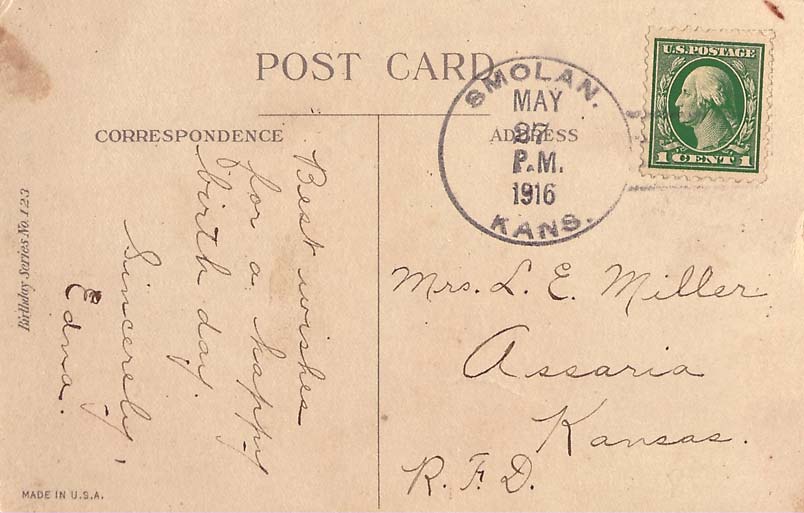 POST CARD
CORRESPONDENCE
ADDRESS
SMOLAN.
MAY
27
P.M.
1916
KANS.
U.S. POSTAGE
1 CENT 1
Best wishes
for a happy
birth day.
Sincerely,
Edna.
Mrs. L. E. Miller
Assaria
Kansas.
R. F. D.
Birthday Series No. 123
MADE IN U.S.A.